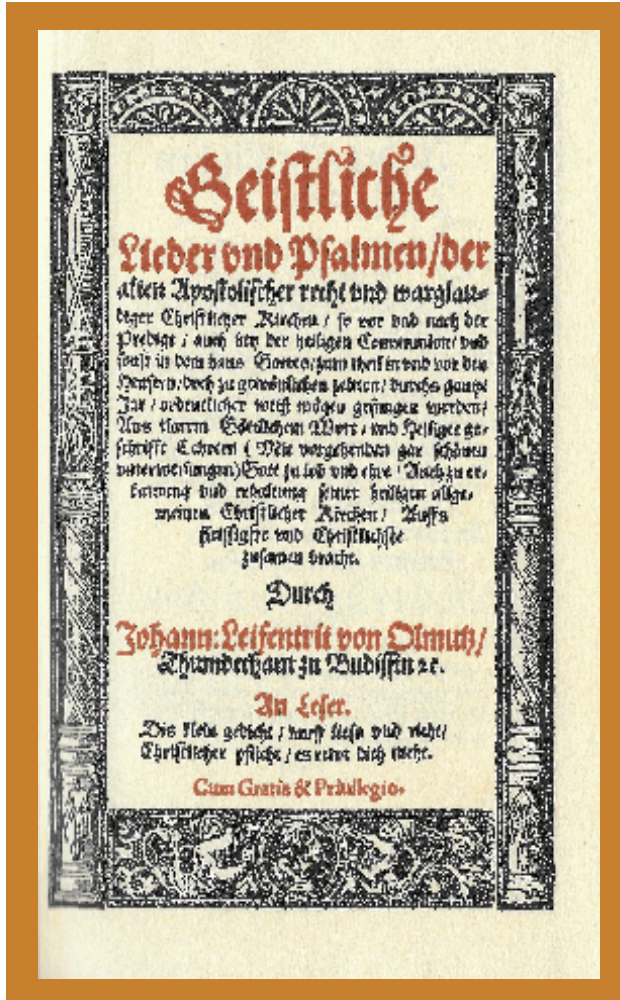 Geistliche
Lieder vnd Psalmen/der
alten Apostolischer recht vnd warglau-
biger Christlicher Kirchen / so vor vnd nach der
Predigt / auch bey der heiligen Communion/ vnd
sonst in dem haus Gottes/zum theil in vnd vor den
Heusern/doch zu gewönlichen zeiten/ durchs gantze
Jar / ordentlicher weiß mögen gesungen werden/
Aus klarem Göttlichem Wort / vnd Heiliger ge-
schrifft Lehren ( Mit vorgehenden gar schönen
vnterweisungen) Gott zu lob vnd ehre / Auch zu er-
vnd seiner heiligen allge-
meinen Christlicher Kirchen / Auffs
fleissigste vnd Christlichste
zusamen bracht.
Durch
Johann: Leisentrit von Olmutz/
Thumdechant zu Budissin ꝛc.
An Leser.
Dis klein gedicht / lieſs vnd nicht/
Christlicher pflicht / es rewt dich nicht.
Cum Gratia & Priuilegio.